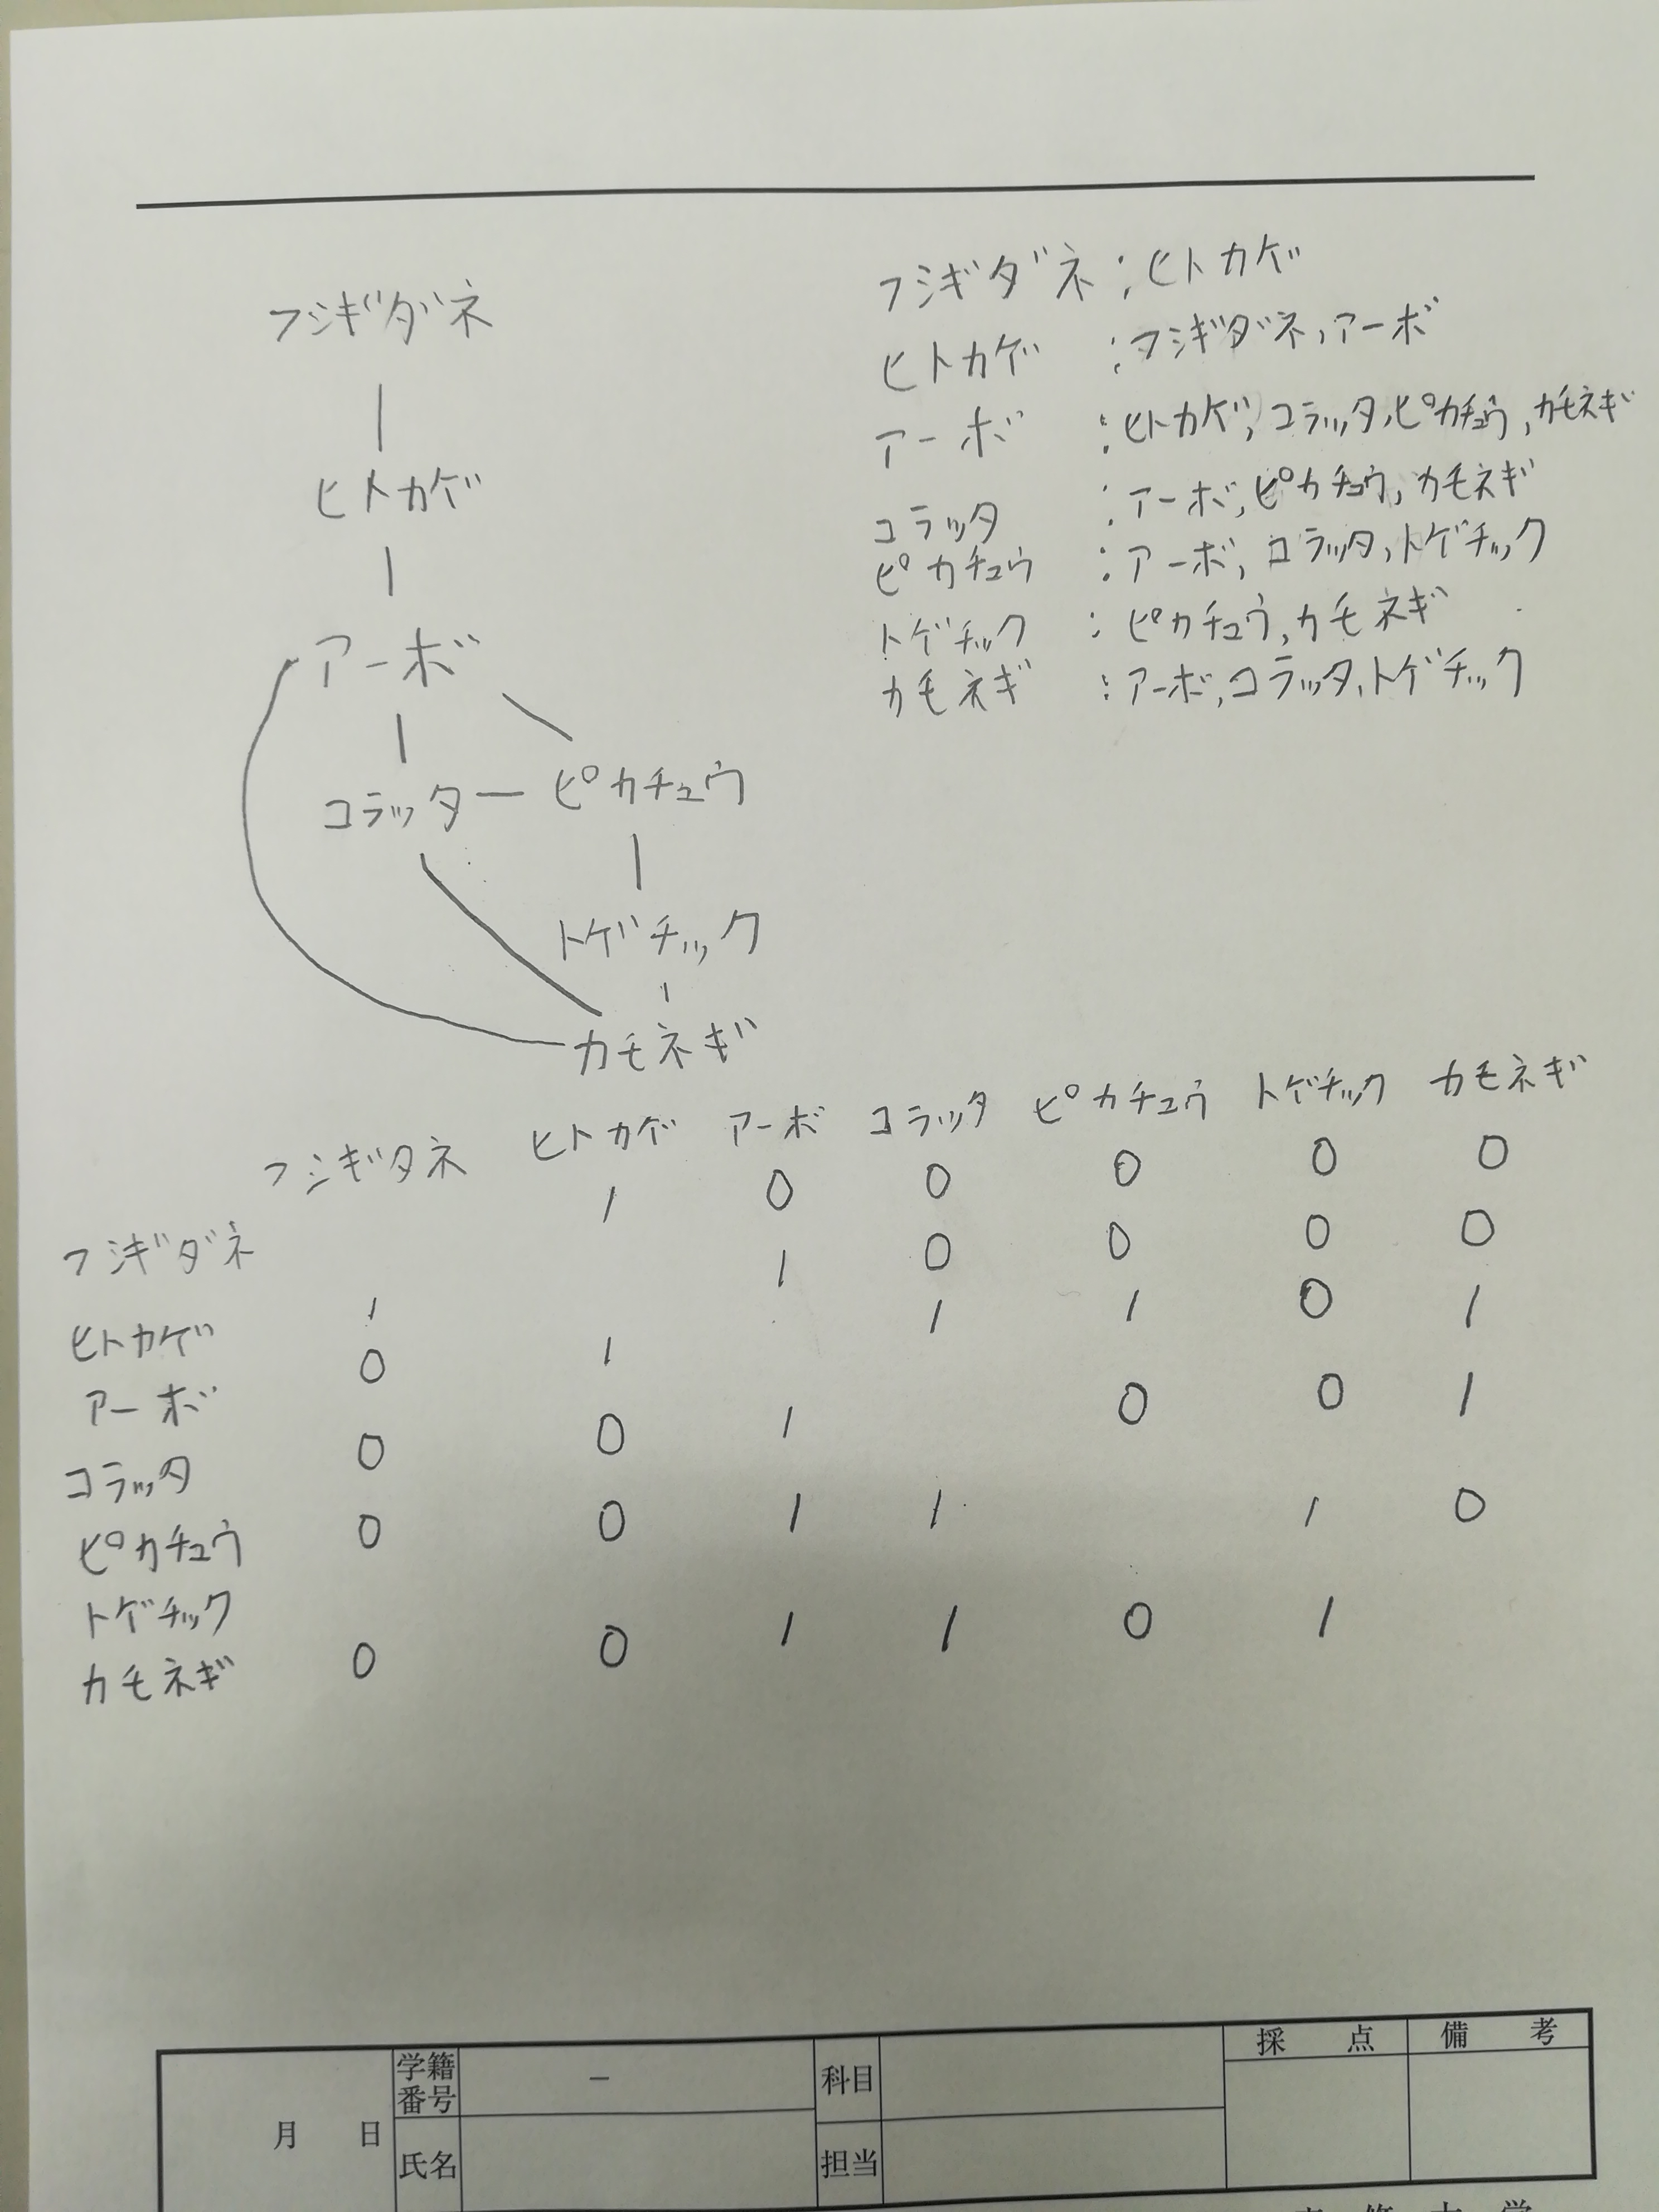 フシギダネ
ヒトカゲ
アーボ
コラッタ ピカチュウ
トゲチック
カモネギ
フシギダネ:ヒトカゲ
ヒトカゲ :フシギダネ,アーボ
アーボ :ヒトカゲ,コラッタ,ピカチュウ,カモネギ
コラッタ :アーボ,ピカチュウ,カモネギ
ピカチュウ :アーボ,コラッタ,トゲチック
トゲチック :ピカチュウ,カモネギ
カモネギ :アーボ,コラッタ,トゲチック
フシギタネ ヒトカゲ アーボ コラッタ ピカチュウ トゲチック カモネギ
フシギダネ 1 0 0 0 0 0
ヒトカゲ 1 1 0 0 0 0
アーボ 0 1 1 1 0 1
コラッタ 0 0 1 0 0 1
ピカチュウ 0 0 1 1 1 0
トゲチック
カモネギ 0 0 1 1 0 1
月 日 学籍番号 － 科目 採点 備考
氏名 担当